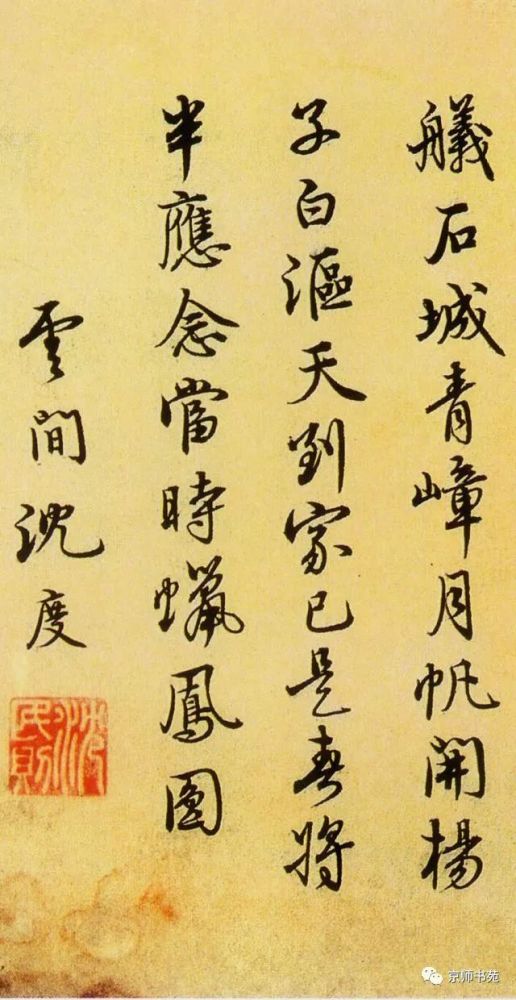 艤石城青嶂月帆開楊
子白漚天到家已是春將
半應念當時蠟鳳圖
雲間沈度
沈民則
京师书苑